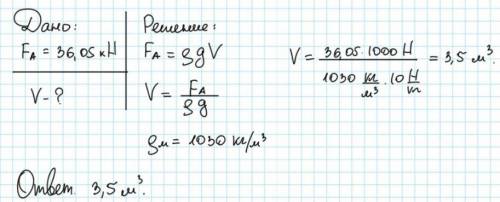 Дано:
F_A = 36,05 кН
V - ?
Решение:
F_A = ρgV
V = F_A / ρg
ρм = 1030 кг/м³
V = 36,05 · 1000 Н / 1030 кг/м³ · 10 Н/кг = 3,5 м³.
Ответ 3,5 м³.